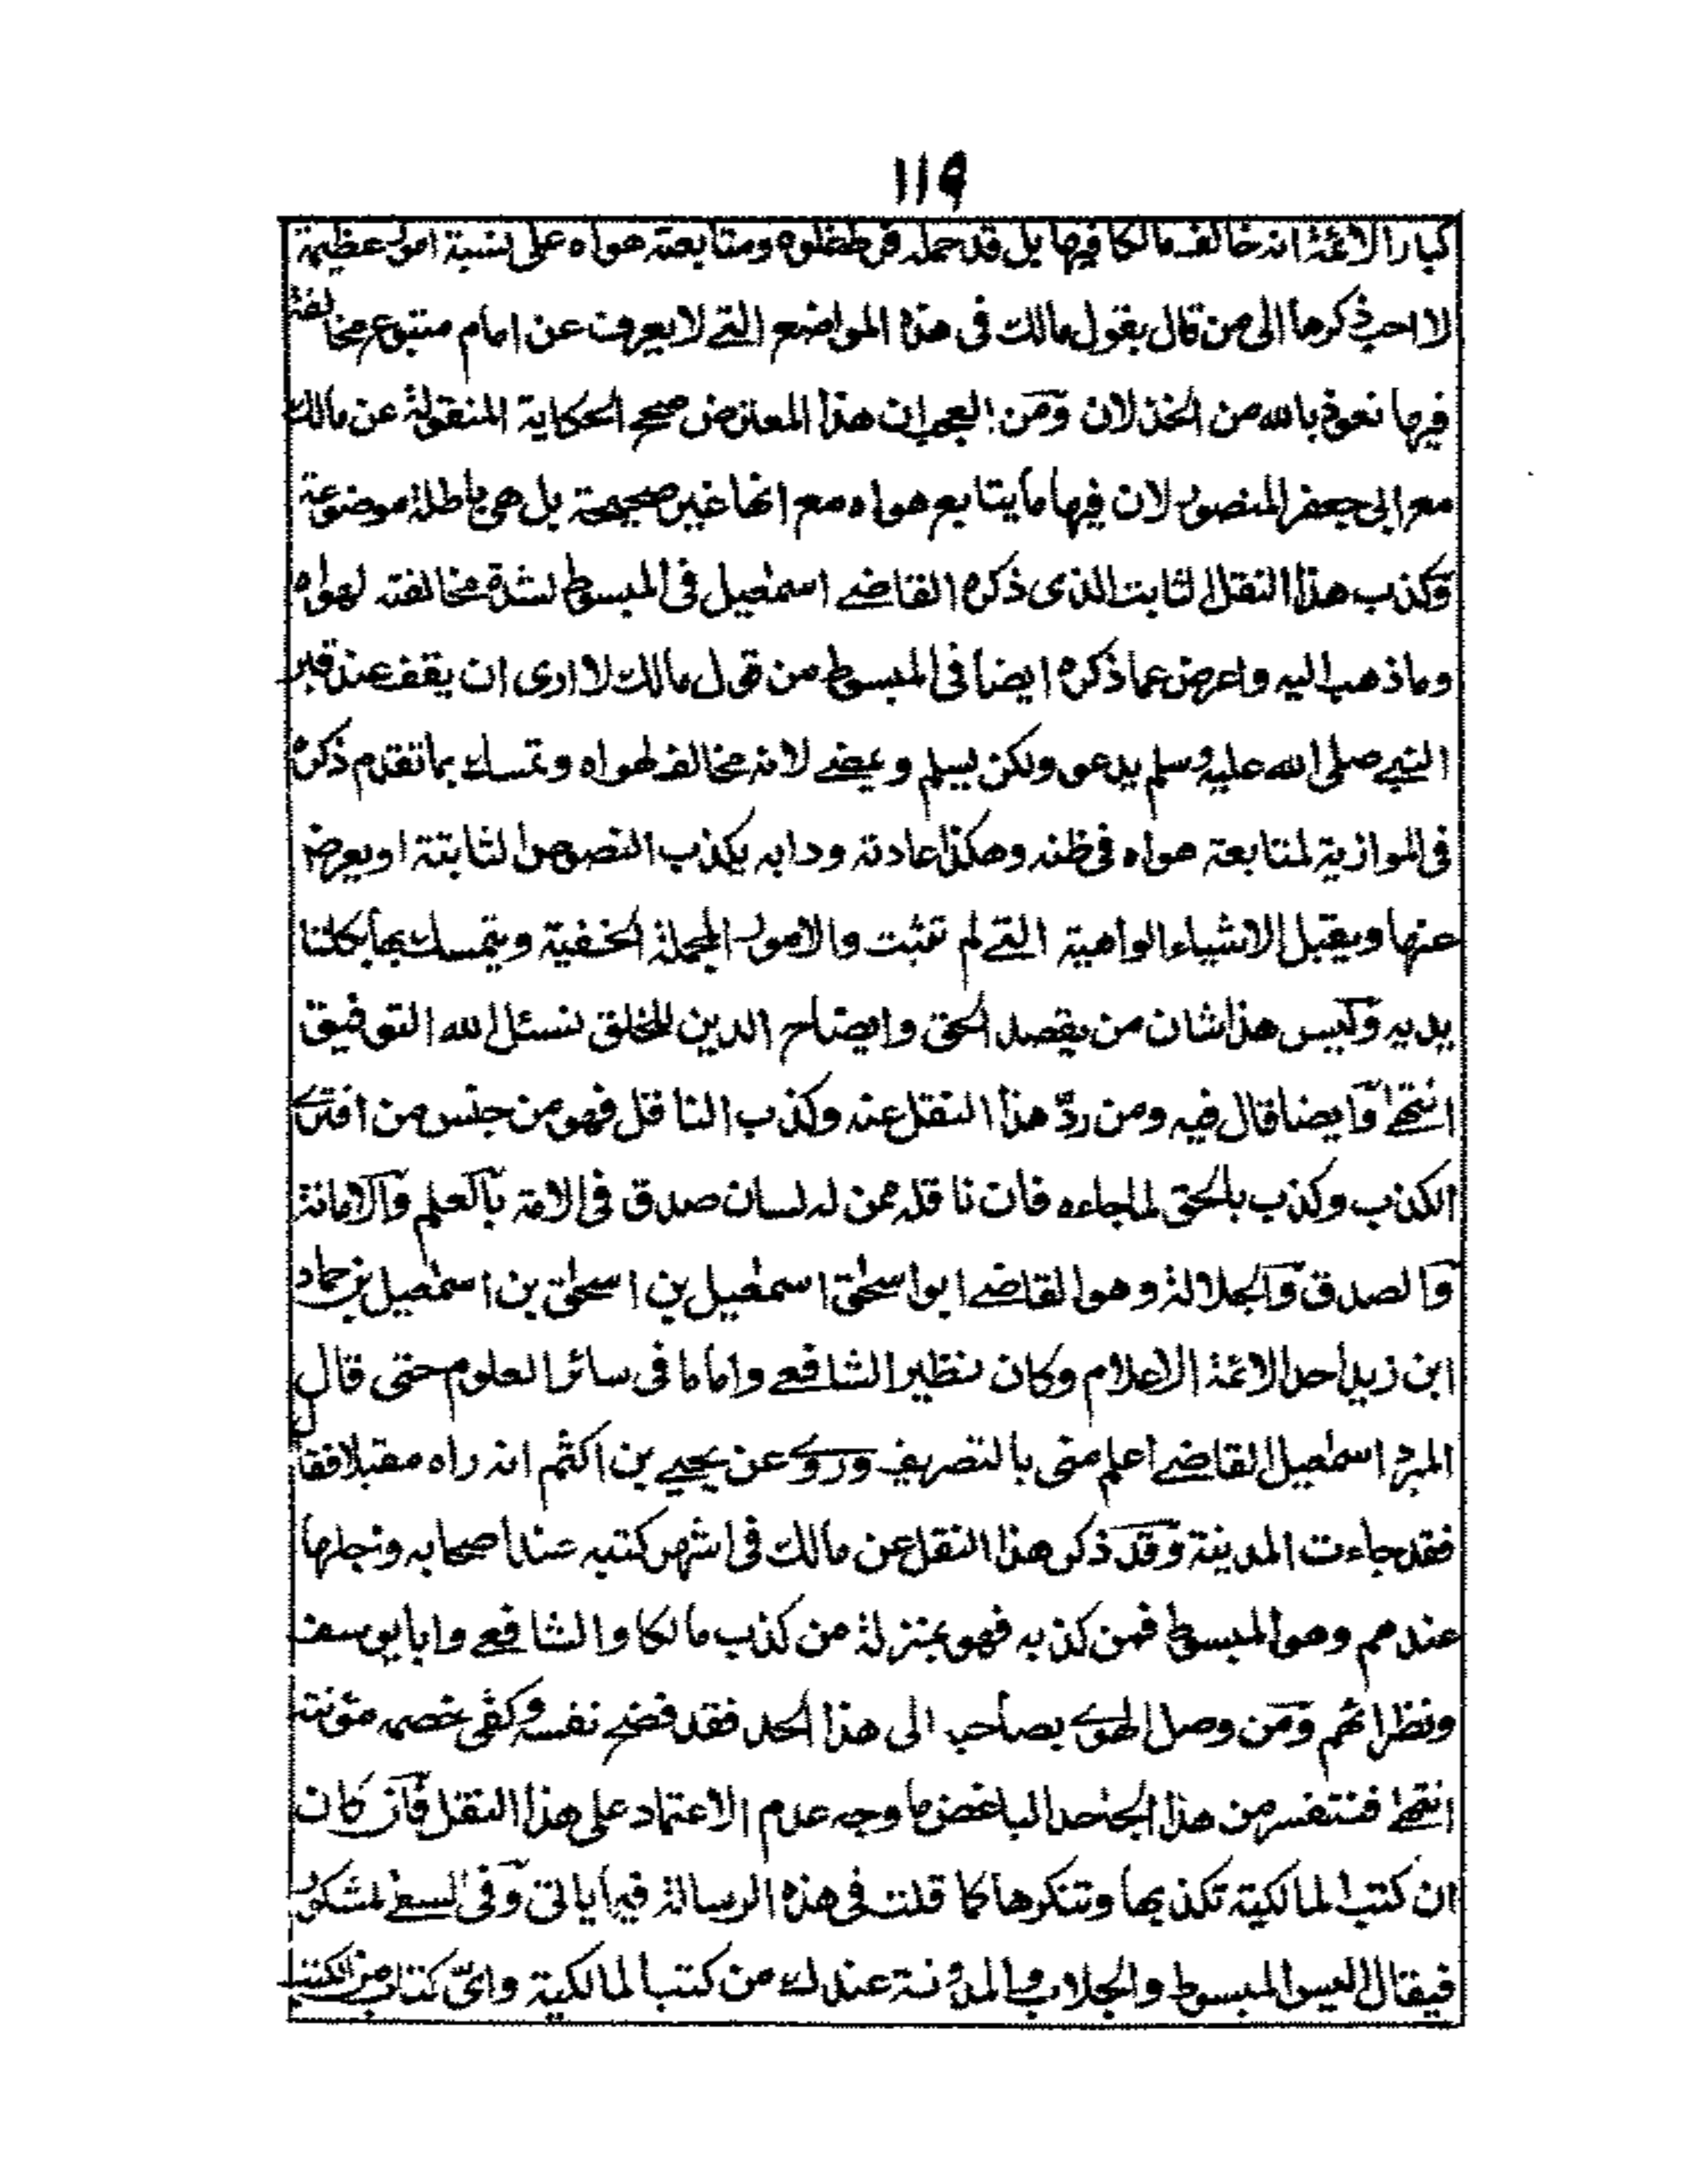 ١١٩
كبار الائمة انه خالف مالكا فيها بل قد حمله فرط غلوه ومتابعته هواه على نسبة امور عظيمة
لا احب ذكرها الى من قال بقول مالك فى هذه المواضع التے لا يعرف عن امام متبوع مخالفة
فيها نعوذ بالله من الخذلان ومن العجب ان هذا المعترض صحح الحكاية المنقولة عن مالك
مع ابى جعفر المنصور لان فيها ما يتابع هواه مع انها غير صحيحة بل هى باطلة موضوعة
وكذب هذا النقل الثابت الذى ذكره القاضے اسمٰعيل فى المبسوط لشدة مخالفته لهواه
وما ذهب اليه واعرض عما ذكره ايضا فى المبسوط من قول مالك لا ارى ان يقف عند قبر
النبے صلى الله عليه وسلم يدعو ولكن يسلم ويمضے لانه مخالف لهواه وتمسك بما تقدم ذكره
فى الموازية لمتابعة هواه فى ظنه وهكذا عادته ودابه يكذب النصوص الثابتة او يعرض
عنها ويقبل الاشياء الواهية التے لم تثبت والامور المجملة الخفية ويتمسك بها بكلتا
يديه وليس هذا شان من يقصد الحق وايضاح الدين للخلق نسئل الله التوفيق
انتهے وايضا قال فيه ومن ردّ هذا النقل عنه وكذب الناقل فهو من جنس من افترے
الكذب وكذب بالحق لما جاءه فان ناقله ممن له لسان صدق فى الامة بالعلم والامانة
والصدق والجلالة وهو القاضے ابو اسحٰق اسمٰعيل بن اسحٰق بن اسمٰعيل بن حماد
ابن زيد احد الائمة الاعلام وكان نظير الشافعے واماما فى سائر العلوم حتى قال
المبرد اسمٰعيل القاضے اعلم منى بالتصريف وروے عن يحيے بن اكثم انه راه مقبلا فقال
فقد جاءت المدينة وقد ذكر هذا النقل عن مالك فى اشهر كتبه عند اصحابه واجلها
عندهم وهو المبسوط فمن كذبه فهو بمنزلة من كذب مالكا والشافعے وابا يوسف
ونظرائهم ومن وصل الهوے بصاحبه الى هذا الحد فقد فضح نفسه وكفى خصمه مؤنته
انتهے فنستفسر من هذا الجاحد المباغض ما وجه عدم الاعتماد على هذا النقل فان كان
ان كتب المالكية تكذبها وتنكرها كما قلت فى هذه الرسالة فيما ياتى وفى السعے المشكور
فيقال اليس المبسوط والجلاب والمدونة عندك من كتب المالكية واىّ كتاب من الكتب